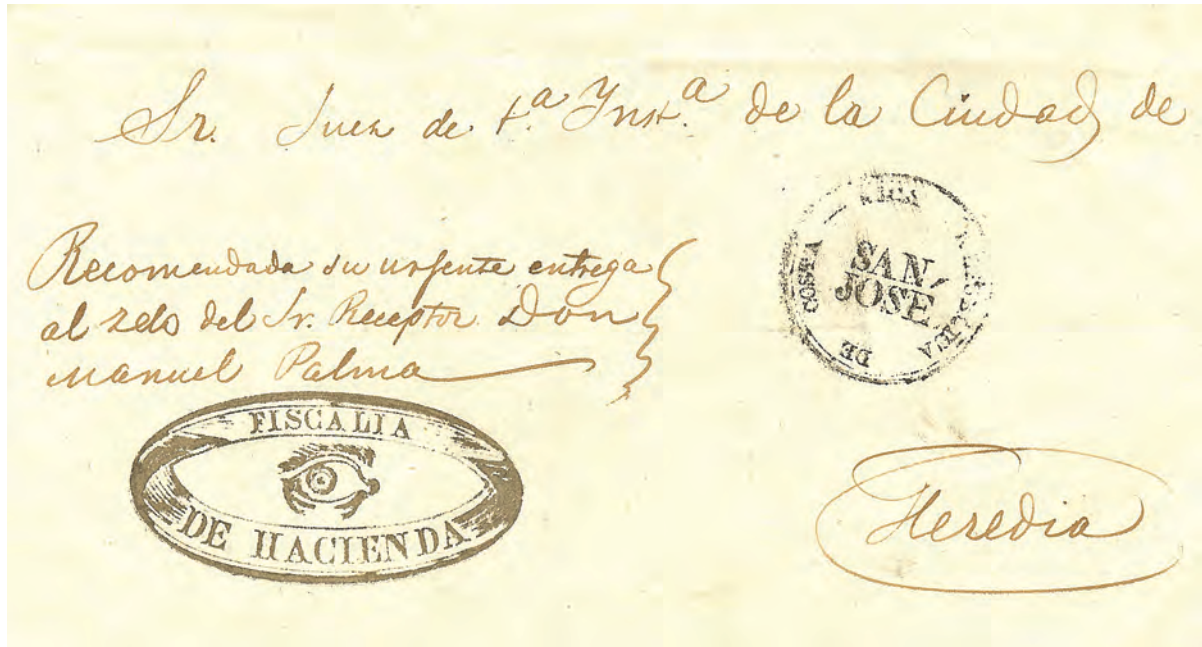 Sr. Juez de 1.ª Inst.ª de la Ciudad de
Recomendada su urgente entrega
al zelo del Sr. Receptor Don
Manuel Palma
COSTA RICA
SAN
JOSE
DE
FISCALIA
DE HACIENDA
Heredia